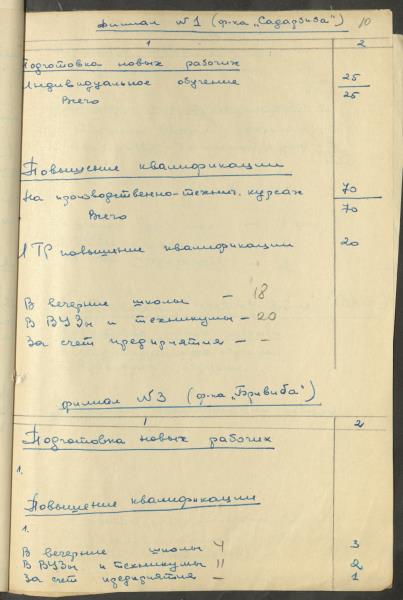 филиал №1 (ф-ка „Садарзиба“) 10
1 2
Подготовка новых рабочих
Индивидуальное обучение 25
Всего 25
Повышение квалификации
На производственно-технич. курсах 70
Всего 70
ИТР повышение квалификации 20
В вечерние школы – 18
В ВУЗы и техникумы – 20
За счет предприятия – –
филиал №3 (ф-ка „Бривиба“)
1 2
Подготовка новых рабочих
1.
Повышение квалификации
1.
В вечерние школы 4 3
В ВУЗы и техникумы 11 2
За счет предприятия – 1